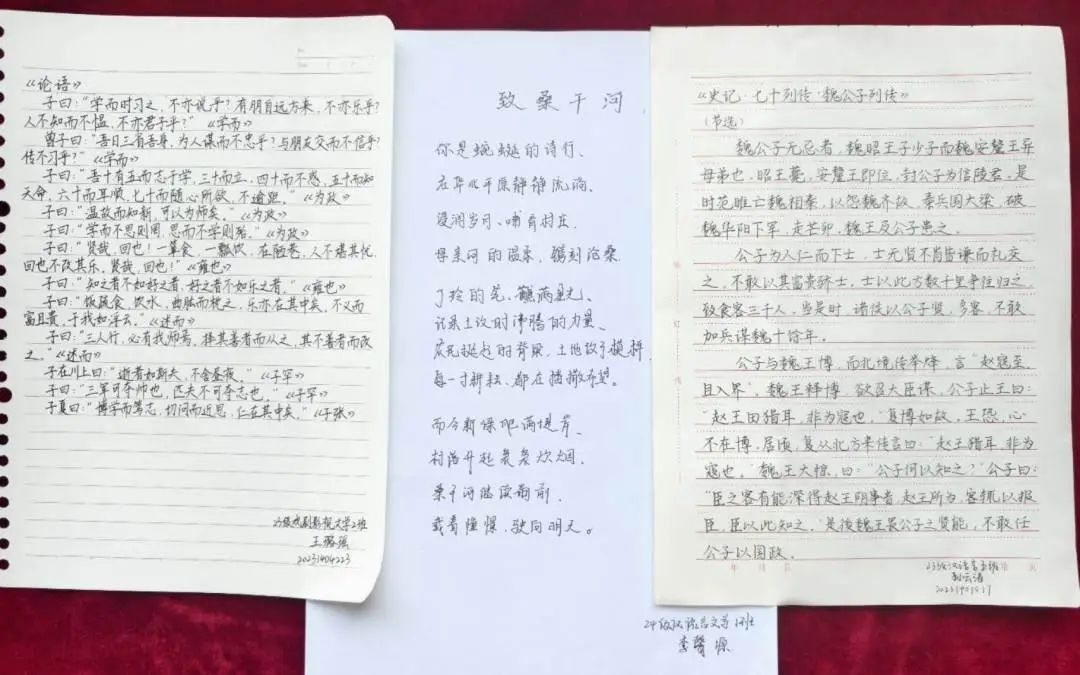 《论语》
子曰：“学而时习之，不亦说乎？有朋自远方来，不亦乐乎？
人不知而不愠，不亦君子乎？”《学而》
曾子曰：“吾日三省吾身，为人谋而不忠乎？与朋友交而不信乎？
传不习乎？”《学而》
子曰：“吾十有五而志于学，三十而立，四十而不惑，五十而知
天命，六十而耳顺，七十而随心所欲，不逾距。《为政》
子曰：“温故而知新，可以为师矣。《为政》
子曰：“学而不思则罔，思而不学则殆。”《为政》
子曰：“贤哉，回也！一箪食，一瓢饮，在陋巷，人不堪其忧，
回也不改其乐。贤哉，回也！”《雍也》
子曰：“知之者不如好之者，好之者不如乐之者。”《雍也》
子曰：“饭疏食，饮水，曲肱而枕之，乐亦在其中矣，不义而
富且贵，于我如浮云。”《述而》
子曰：“三人行，必有我师焉，择其善者而从之，其不善者而改
之。”《述而》
子在川上曰：“逝者如斯夫，不舍昼夜。”《子罕》
子曰：“三军可夺帅也，匹夫不可夺志也。”《子罕》
子夏曰：“博学而笃志，切问而近思，仁在其中矣。”《子张》
23级戏剧影视文学2班
王璐瑶
20231404223
致桑干河
你是蜿蜒的诗行，
在华北平原静静流淌，
浸润岁月、哺育村庄
母亲河的温柔，镌刻沧桑
丁玲的笔，蘸满星光、
记录土改时沸腾的力量。
农民挺起的脊梁，土地改了模样，
每一寸耕耘，都在播撒希望。
而今新绿吧两堤岸，
村落升起袅袅炊烟，
桑干河继续朝前，
载着憧憬，驶向明天。
24级汉语言文学1班
李馨源
《史记·七十列传·魏公子列传》
（节选）
魏公子无忌者，魏昭王子少子而魏安釐王异
母弟也，昭王薨，安釐王即位，封公子为信陵君，是
时范雎亡魏相秦，以怨魏齐故，秦兵围大梁，破
魏华阳下军，走芒卯，魏王及公子患之。
公子为人仁而下士，士无贤不肖皆谦而礼交
之，不敢以其富贵骄士，士以此方数千里争往归之，
致食客三千人，当是时，诸侯以公子贤，多客，不敢
加兵谋魏十馀年。
公子与魏王博，而北境传举烽，言“赵寇至，
且入界”，魏王释博，欲召大臣谋，公子止王曰：
“赵王田猎耳，非为寇也，”复博如故，王恐，心
不在博，居顷，复从北方来传言曰：“赵王猎耳，非为
寇也，”魏王大惊，曰：“公子何以知之？”公子曰：
“臣之客有能深得赵王阴事者，赵王所为，客辄以报
臣，臣以此知之，”是後魏王畏公子之贤能，不敢任
公子以国政。